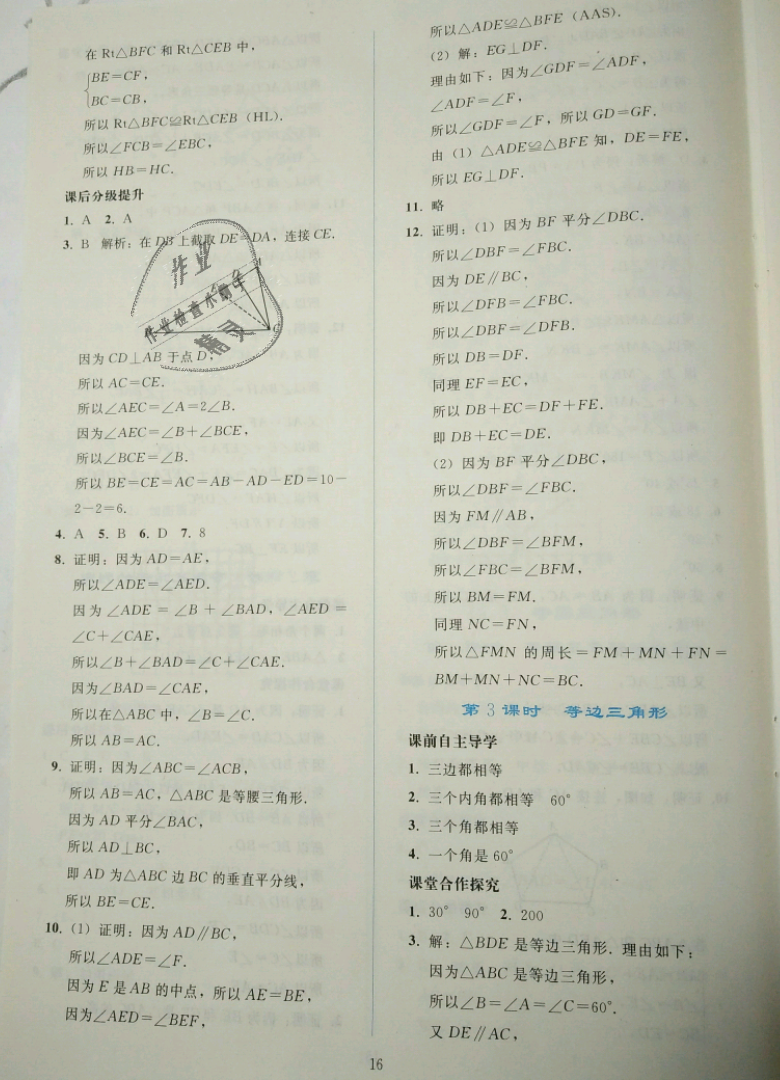 在 Rt△BFC 和 Rt△CEB 中，
BE＝CF，
BC＝CB，
所以 Rt△BFC≌Rt△CEB（HL）．
所以∠FCB＝∠EBC，
所以 HB＝HC．
课后分级提升
1. A 2. A
3. B 解析：在 DB 上截取 DE＝DA，连接 CE．
作业
作业检查小助手
精灵
C
因为 CD⊥AB 于点 D，
所以 AC＝CE．
所以∠AEC＝∠A＝2∠B．
因为∠AEC＝∠B＋∠BCE，
所以∠BCE＝∠B．
所以 BE＝CE＝AC＝AB－AD－ED＝10－
2－2＝6．
4. A 5. B 6. D 7. 8
8. 证明：因为 AD＝AE，
所以∠ADE＝∠AED．
因为∠ADE＝∠B＋∠BAD，∠AED＝
∠C＋∠CAE，
所以∠B＋∠BAD＝∠C＋∠CAE．
因为∠BAD＝∠CAE，
所以在△ABC 中，∠B＝∠C．
所以 AB＝AC．
9. 证明：因为∠ABC＝∠ACB，
所以 AB＝AC，△ABC 是等腰三角形．
因为 AD 平分∠BAC，
所以 AD⊥BC，
即 AD 为△ABC 边 BC 的垂直平分线，
所以 BE＝CE．
10. （1）证明：因为 AD∥BC，
所以∠ADE＝∠F．
因为 E 是 AB 的中点，所以 AE＝BE，
因为∠AED＝∠BEF，
所以△ADE≌△BFE（AAS）．
（2）解：EG⊥DF．
理由如下：因为∠GDF＝∠ADF，
∠ADF＝∠F，
所以∠GDF＝∠F，所以 GD＝GF．
由（1）△ADE≌△BFE 知，DE＝FE，
所以 EG⊥DF．
11. 略
12. 证明：（1）因为 BF 平分∠DBC．
所以∠DBF＝∠FBC．
因为 DE∥BC，
所以∠DFB＝∠FBC．
所以∠DBF＝∠DFB．
所以 DB＝DF．
同理 EF＝EC，
所以 DB＋EC＝DF＋FE．
即 DB＋EC＝DE．
（2）因为 BF 平分∠DBC，
所以∠DBF＝∠FBC．
因为 FM∥AB，
所以∠DBF＝∠BFM，
所以∠FBC＝∠BFM，
所以 BM＝FM．
同理 NC＝FN，
所以△FMN 的周长＝FM＋MN＋FN＝
BM＋MN＋NC＝BC．
第 3 课时 等边三角形
课前自主导学
1. 三边都相等
2. 三个内角都相等 60°
3. 三个角都相等
4. 一个角是 60°
课堂合作探究
1. 30° 90° 2. 200
3. 解：△BDE 是等边三角形．理由如下：
因为△ABC 是等边三角形，
所以∠B＝∠A＝∠C＝60°．
又 DE∥AC，
16